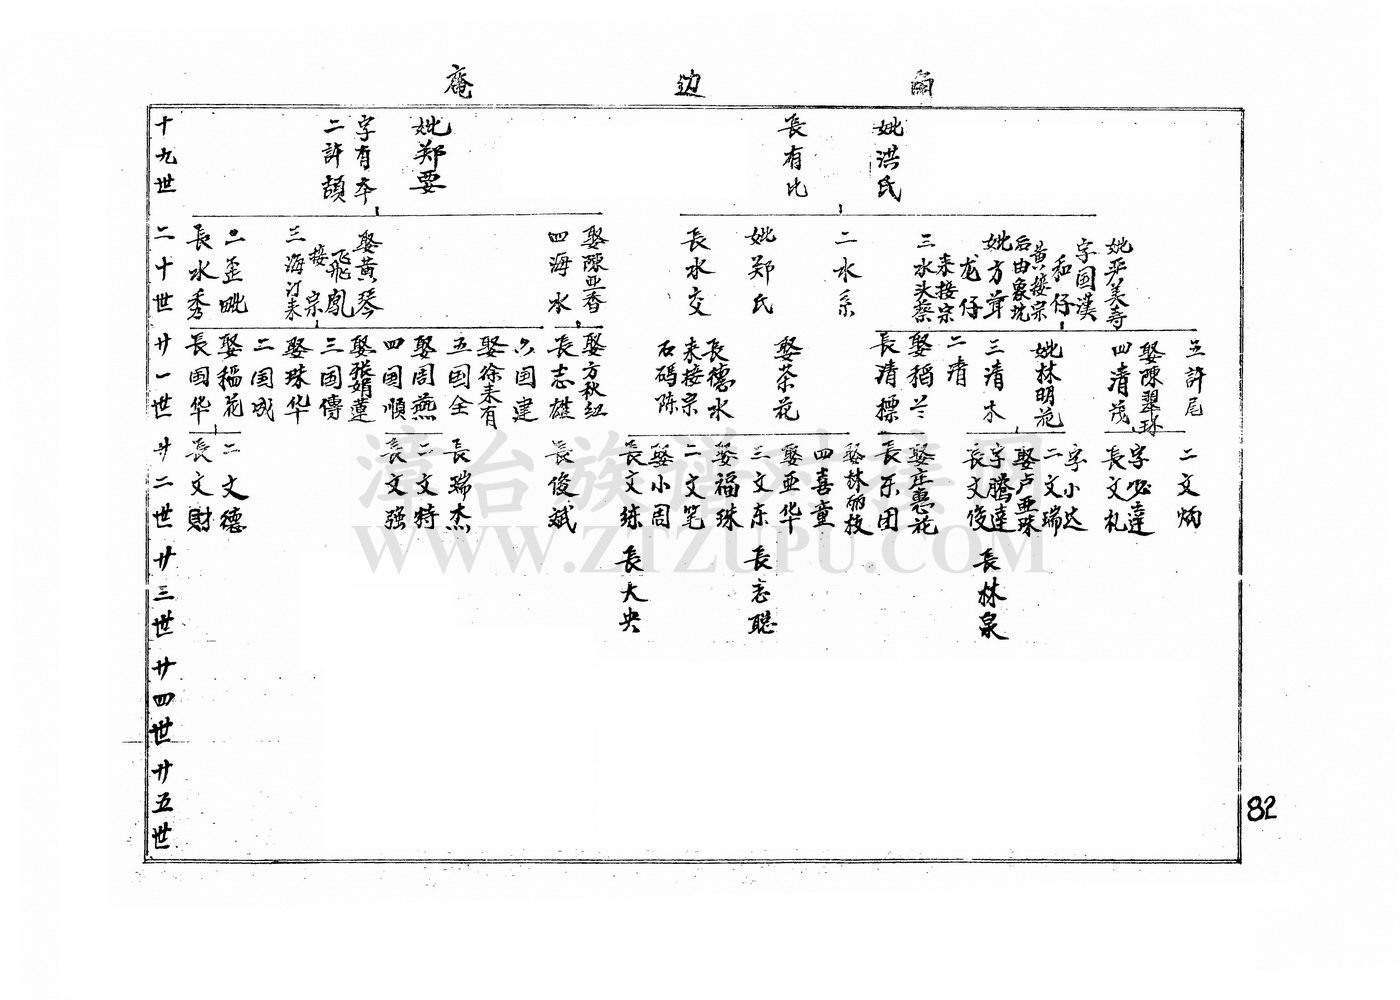 庵 边 南
十九世
妣洪氏
長有比
妣郑要
字有本
二許頡
二十世
妣巫美寿
字国漢
和仔
黄接宗
后由象坑
妣方茸
龙仔
来接宗
三水头蔡
二水系
妣郑氏
長水交
娶陳亚香
四海水
娶黄琴
飞飛鳳
接宗
三海汀来
二歪毗
長水秀
廿一世
五許尾
娶陳翠珠
四清茂
妣林明花
三清木
二清
娶稻兰
長清標
娶茶花
長德水
来接宗
石碼陈
娶方秋紅
長志雄
六国建
娶徐来有
五国全
娶周燕
四国順
娶張娟蓮
三国傳
娶珠华
二国成
娶稲花
長国华
廿二世
二文炳
字必達
長文札
字小达
二文瑞
娶卢亚珠
字腾達
長文俊
娶庄惠花
長乐团
娶林丽枝
四喜童
娶亚华
三文东
娶福珠
二文笔
娶小周
長文练
長俊斌
長瑞杰
二文特
長文强
二文德
長文財
廿三世
長林泉
長志聪
長大央
廿四世
廿五世
82
漳台族谱对接网
WWW.ZTZUPU.COM